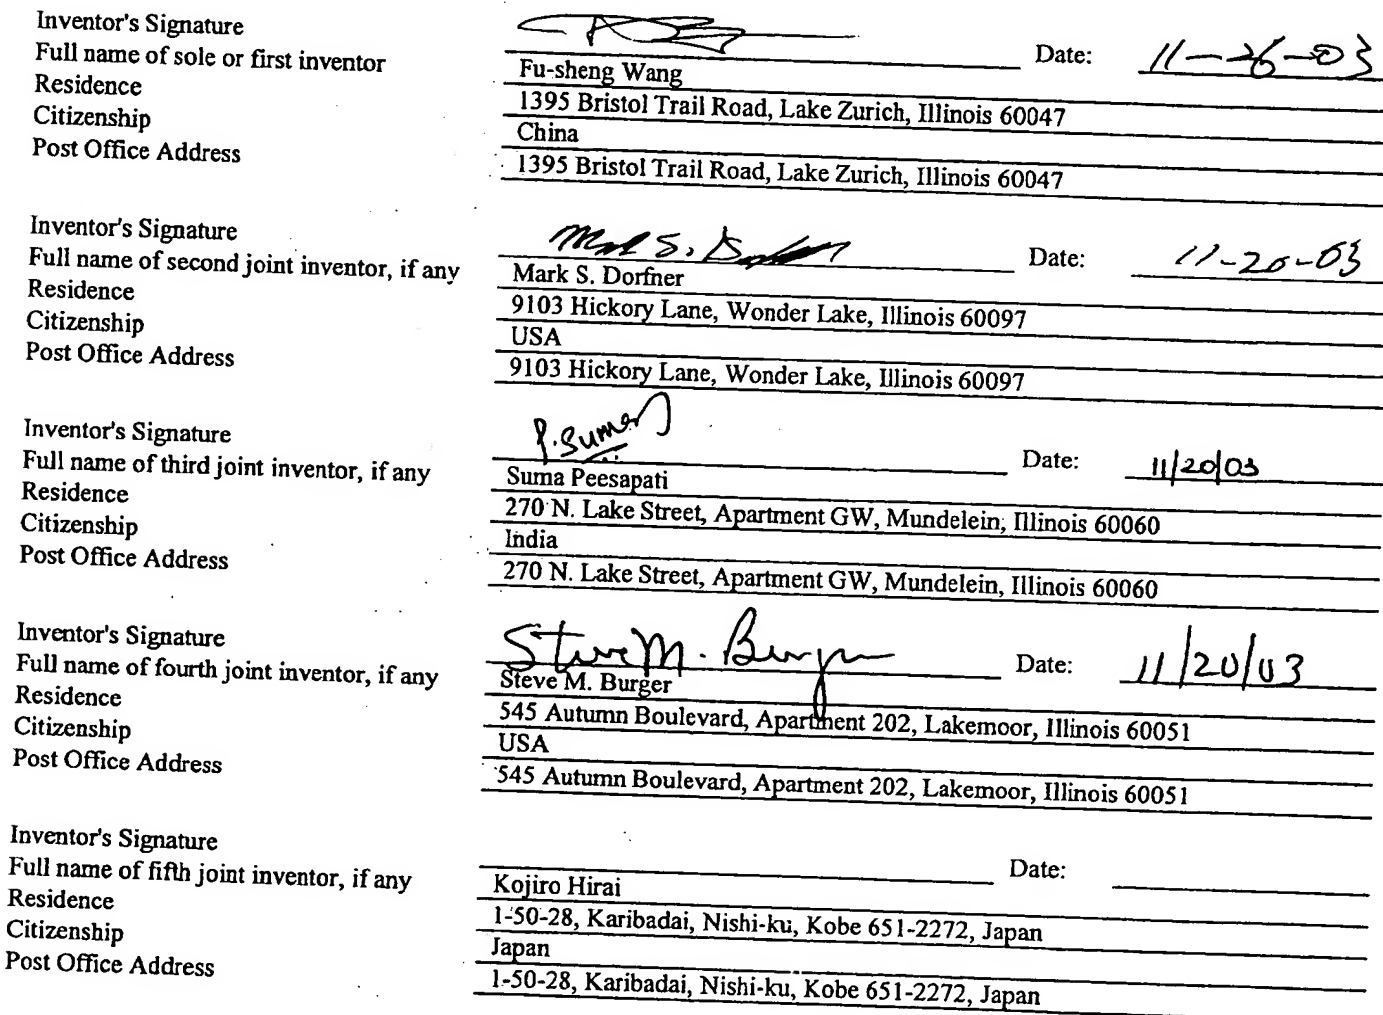 Inventor's Signature Date: 11-26-03
Full name of sole or first inventor Fu-sheng Wang
Residence 1395 Bristol Trail Road, Lake Zurich, Illinois 60047
Citizenship China
Post Office Address 1395 Bristol Trail Road, Lake Zurich, Illinois 60047
Inventor's Signature Mark S. Date: 11-20-03
Full name of second joint inventor, if any Mark S. Dorfner
Residence 9103 Hickory Lane, Wonder Lake, Illinois 60097
Citizenship USA
Post Office Address 9103 Hickory Lane, Wonder Lake, Illinois 60097
Inventor's Signature P. Suma Date: 11/20/03
Full name of third joint inventor, if any Suma Peesapati
Residence 270 N. Lake Street, Apartment GW, Mundelein, Illinois 60060
Citizenship India
Post Office Address 270 N. Lake Street, Apartment GW, Mundelein, Illinois 60060
Inventor's Signature Steve M. Burger Date: 11/20/03
Full name of fourth joint inventor, if any Steve M. Burger
Residence 545 Autumn Boulevard, Apartment 202, Lakemoor, Illinois 60051
Citizenship USA
Post Office Address 545 Autumn Boulevard, Apartment 202, Lakemoor, Illinois 60051
Inventor's Signature Date:
Full name of fifth joint inventor, if any Kojiro Hirai
Residence 1-50-28, Karibadai, Nishi-ku, Kobe 651-2272, Japan
Citizenship Japan
Post Office Address 1-50-28, Karibadai, Nishi-ku, Kobe 651-2272, Japan